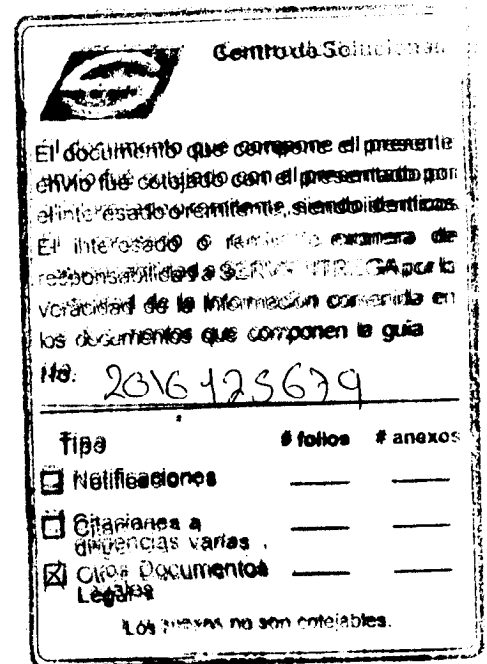 Centro de Soluciones
El documento que compone el presente
envío fue cotejado con el presentado por
el interesado o remitente, siendo identicos.
El interesado o remitente exonera de
responsabilidad a SERVIENTREGA por la
veracidad de la información contenida en
los documentos que componen la guía
No. 2016125679
Tipo # folios # anexos
Notificaciones
Citaciones a
diligencias varias
Otros Documentos
Legales
Los anexos no son cotejables.